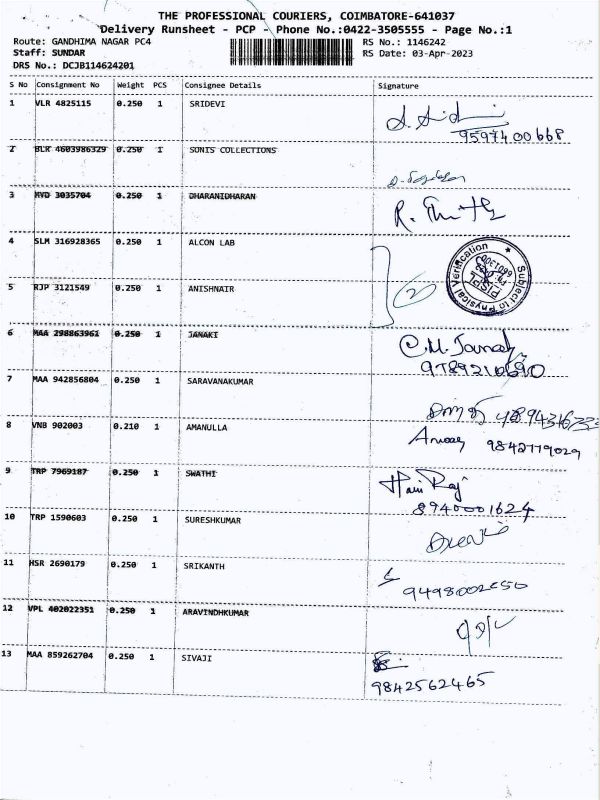 THE PROFESSIONAL COURIERS, COIMBATORE-641037
Delivery Runsheet - PCP - Phone No.:0422-3505555 - Page No.:1
Route: GANDHIMA NAGAR PC4 RS No.: 1146242
Staff: SUNDAR RS Date: 03-Apr-2023
DRS No.: DCJB114624201
S No Consignment No Weight PCS Consignee Details Signature
1 VLR 4825115 0.250 1 SRIDEVI
9597400668
2 BLR 4603986329 0.250 1 SONIS COLLECTIONS
3 MVD 3035704 0.250 1 DHARANIDHARAN
4 SLM 316928365 0.250 1 ALCON LAB
Subject to Physical Verification
5 RJP 3121549 0.250 1 ANISHNAIR
2
6 MAA 298863961 0.250 1 JANAKI
C.M. Janaki
7 MAA 942856804 0.250 1 SARAVANAKUMAR
8 VNB 902003 0.210 1 AMANULLA
9842779029
9 TRP 7969187 0.250 1 SWATHI
Hari Raj
8940001624
10 TRP 1590603 0.250 1 SURESHKUMAR
11 HSR 2690179 0.250 1 SRIKANTH
12 VPL 402022351 0.250 1 ARAVINDHKUMAR
13 MAA 859262704 0.250 1 SIVAJI
9842562465